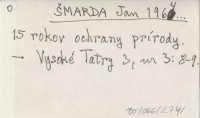 o
ŠMARDA Jan 1964...
15 rokov ochrany prírody.
— Vysoké Tatry 3, nr 3: 8-9.